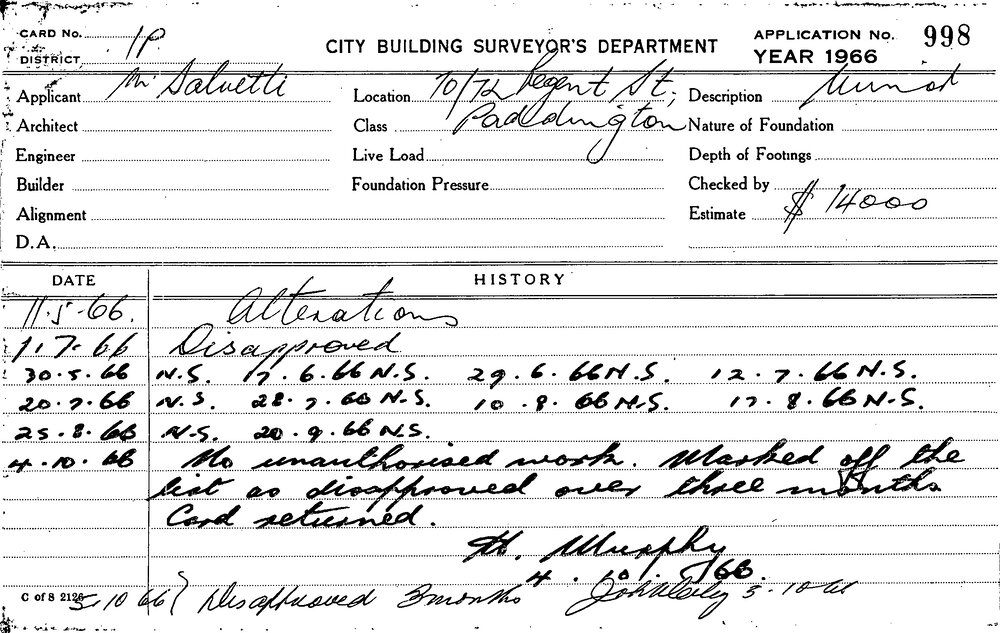 CARD No. 1P
DISTRICT
CITY BUILDING SURVEYOR'S DEPARTMENT
APPLICATION No. 998
YEAR 1966
Applicant Mr Salvetti
Location 70/72 Regent St,
Description
Architect
Class Paddington
Nature of Foundation
Engineer
Live Load
Depth of Footings
Builder
Foundation Pressure
Checked by
Alignment
Estimate $ 14000
D.A.
DATE HISTORY
11.5.66. Alterations
1.7.66 Disapproved
30.5.66 N.S. 17.6.66 N.S. 29.6.66 N.S. 12.7.66 N.S.
20.7.66 N.S. 28.7.66 N.S. 10.8.66 N.S. 17.8.66 N.S.
25.8.66 N.S. 20.9.66 N.S.
4.10.66 No unauthorised work. Marked off the
list as disapproved over three months
Card returned.
H. Murphy
4.10.66.
C of S 2126
5.10 66 Disapproved 3 months 5-10-66